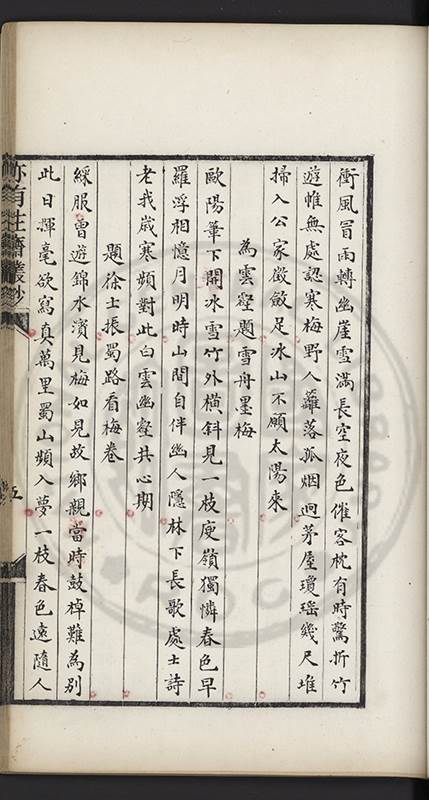 衝風冒雨轉幽崖雪滿長空夜色催客枕有時驚折竹
遊帷無處認寒梅野人籬落孤烟迥茅屋瓊瑤幾尺堆
掃入公家徵斂足冰山不願太陽來
為雲壑題雪舟墨梅
歐陽筆下開冰雪竹外橫斜見一枝庾嶺獨憐春色早
羅浮相憶月明時山間自伴幽人隱林下長歌處士詩
老我歲寒頻對此白雲幽壑共心期
題徐士振蜀路看梅卷
綵服曾遊錦水濱見梅如見故鄉親當時鼓棹難為別
此日揮毫欲寫真萬里蜀山頻入夢一枝春色遠隨人
亦有生齋叢鈔
五